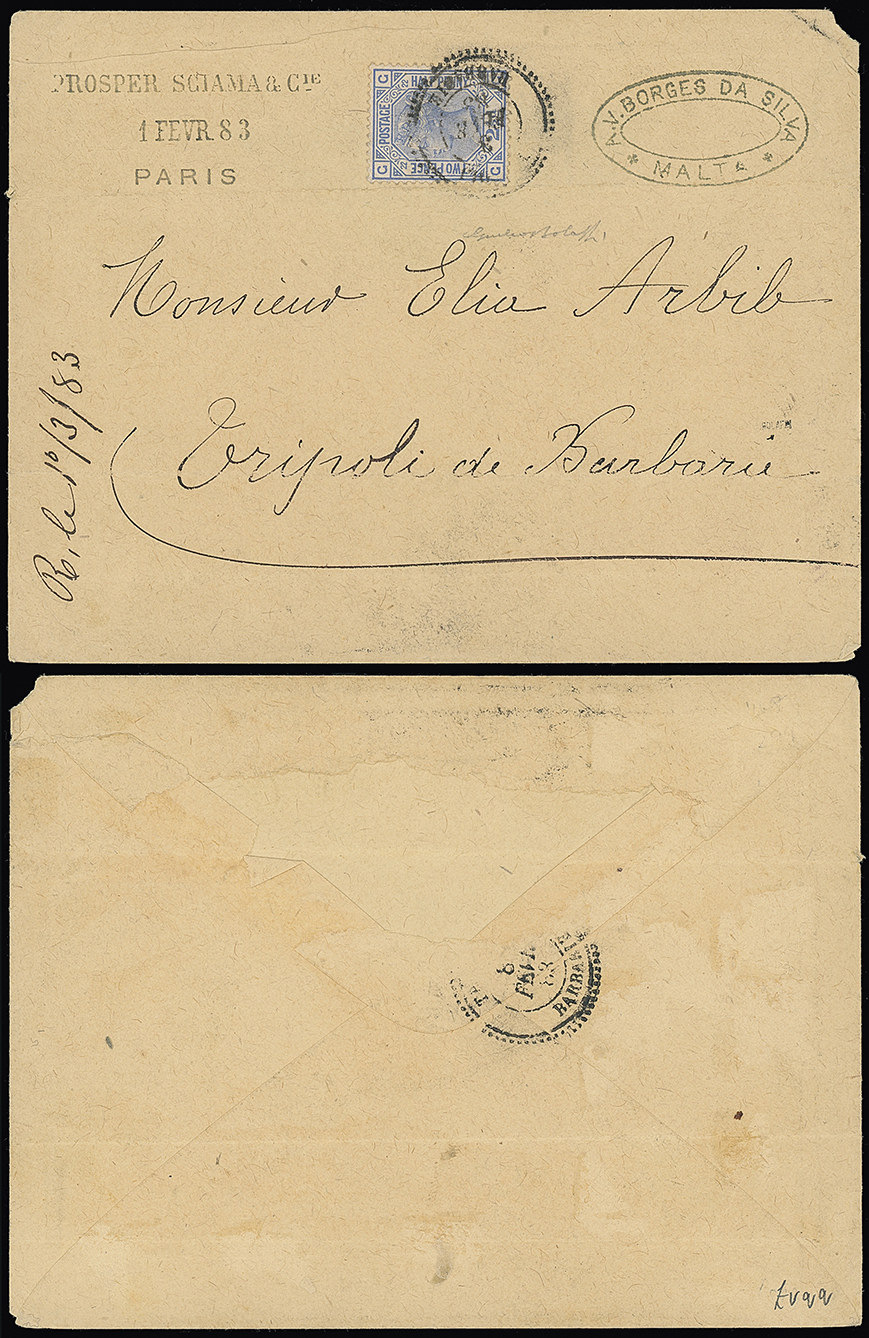 PROSPER SCIAMA & CIE
1 FEVR 83
PARIS
POSTAGE
HALFPENNY
TWO PENCE
C
C
C
C
A.V. BORGES DA SILVA
* MALTA *
Monsieur Elia Arbib
Tripoli de Barbarie
R. le 1º/3/83
8
FEVR
83
BARBARIE